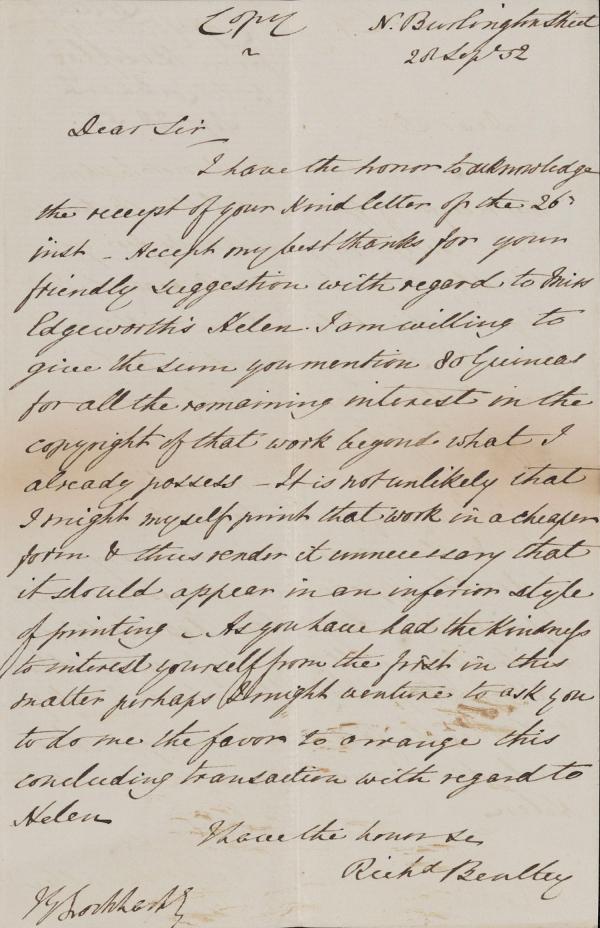 Copy
N. Burlington Street
28 Sept. 52
Dear Sir
I have the honor to acknowledge
the receipt of your kind letter of the 26th
inst - Accept my best thanks for your
friendly suggestion with regard to Miss
Edgeworth's Helen. I am willing to
give the sum you mention 80 Guineas
for all the remaining interest in the
copyright of that work beyond what I
already possess - It is not unlikely that
I might myself print that work in a cheaper
form & thus render it unnecessary that
it should appear in an inferior style
of printing - As you have had the kindness
to interest yourself from the first in this
matter perhaps I might venture to ask you
to do me the favor to arrange this
concluding transaction with regard to
Helen
I have the honor &c
Richd Bentley
Lockhart